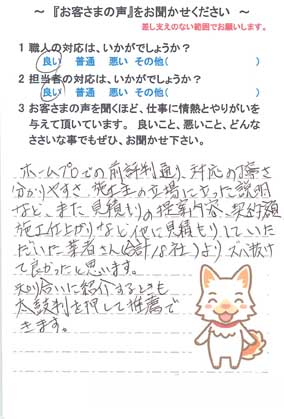 ～ 『お客さまの声』をお聞かせください ～
差し支えのない範囲でお願いします。
1 職人の対応は、いかがでしょうか？
良い 普通 悪い その他( )
2 担当者の対応は、いかがでしょうか？
良い 普通 悪い その他( )
3 お客さまの声を聞くほど、仕事に情熱とやりがいを
与えて頂いています。 良いこと、悪いこと、どんな
ささいな事でもぜひ、お聞かせ下さい。
ホームプロでの前評判通り、対応の丁寧さ
分かりやすさ、施主の立場に立った説明
など、また見積もりの提案内容、契約額
施工仕上がりなど他に見積もりしていた
だいた業者さん(合計 社)よりズバ抜け
て良かったと思います。
知り合いに紹介するときも
太鼓判を押して推薦で
きます。